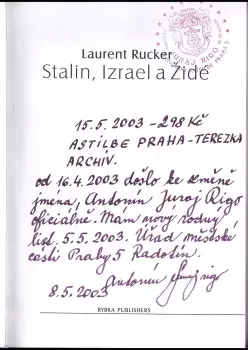 JURAJ RIGO
Laurent Rucker
Stalin, Izrael a Židé
15.5.2003 - 298 Kč
ASTILBE PRAHA - TEREZKA
ARCHÍV.
od 16.4.2003 došlo ke změně
jmena, Antonín Juraj Rigo
oficiálně. Mam nový rodný
list. 5.5.2003. Úřad městské
části Prahy 5 Radotín.
Antonín Juraj Rigo
8.5.2003
RYBKA PUBLISHERS